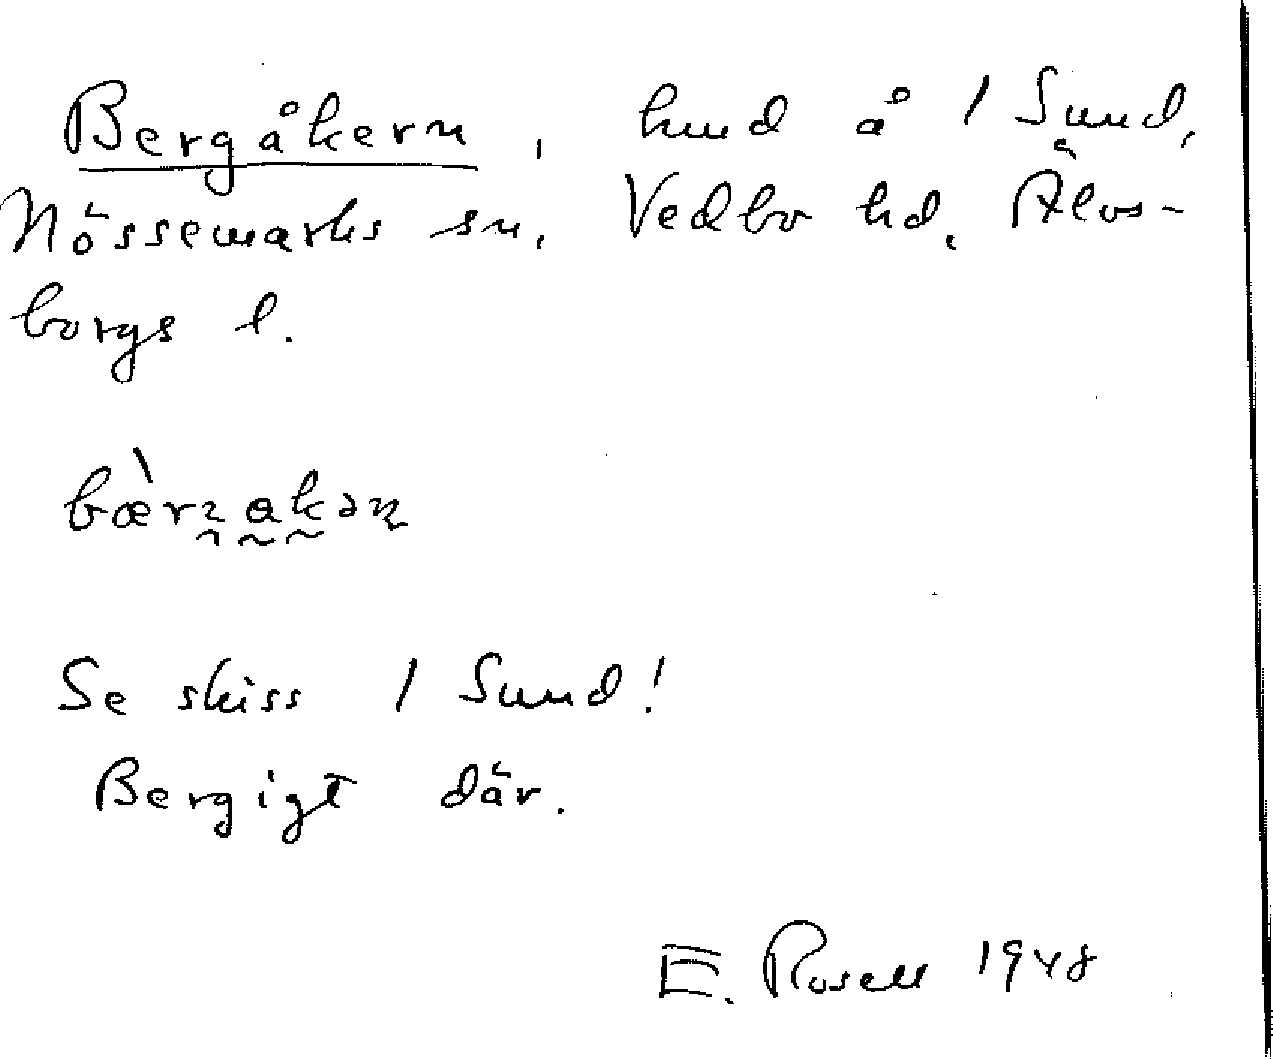 Bergåkern, hmd å 1 Sund,
Nössemarks sn, Vedbo hd, Älvs-
borgs l.
Se skiss 1 Sund!
Bergigt där.
E. Rosell 1948